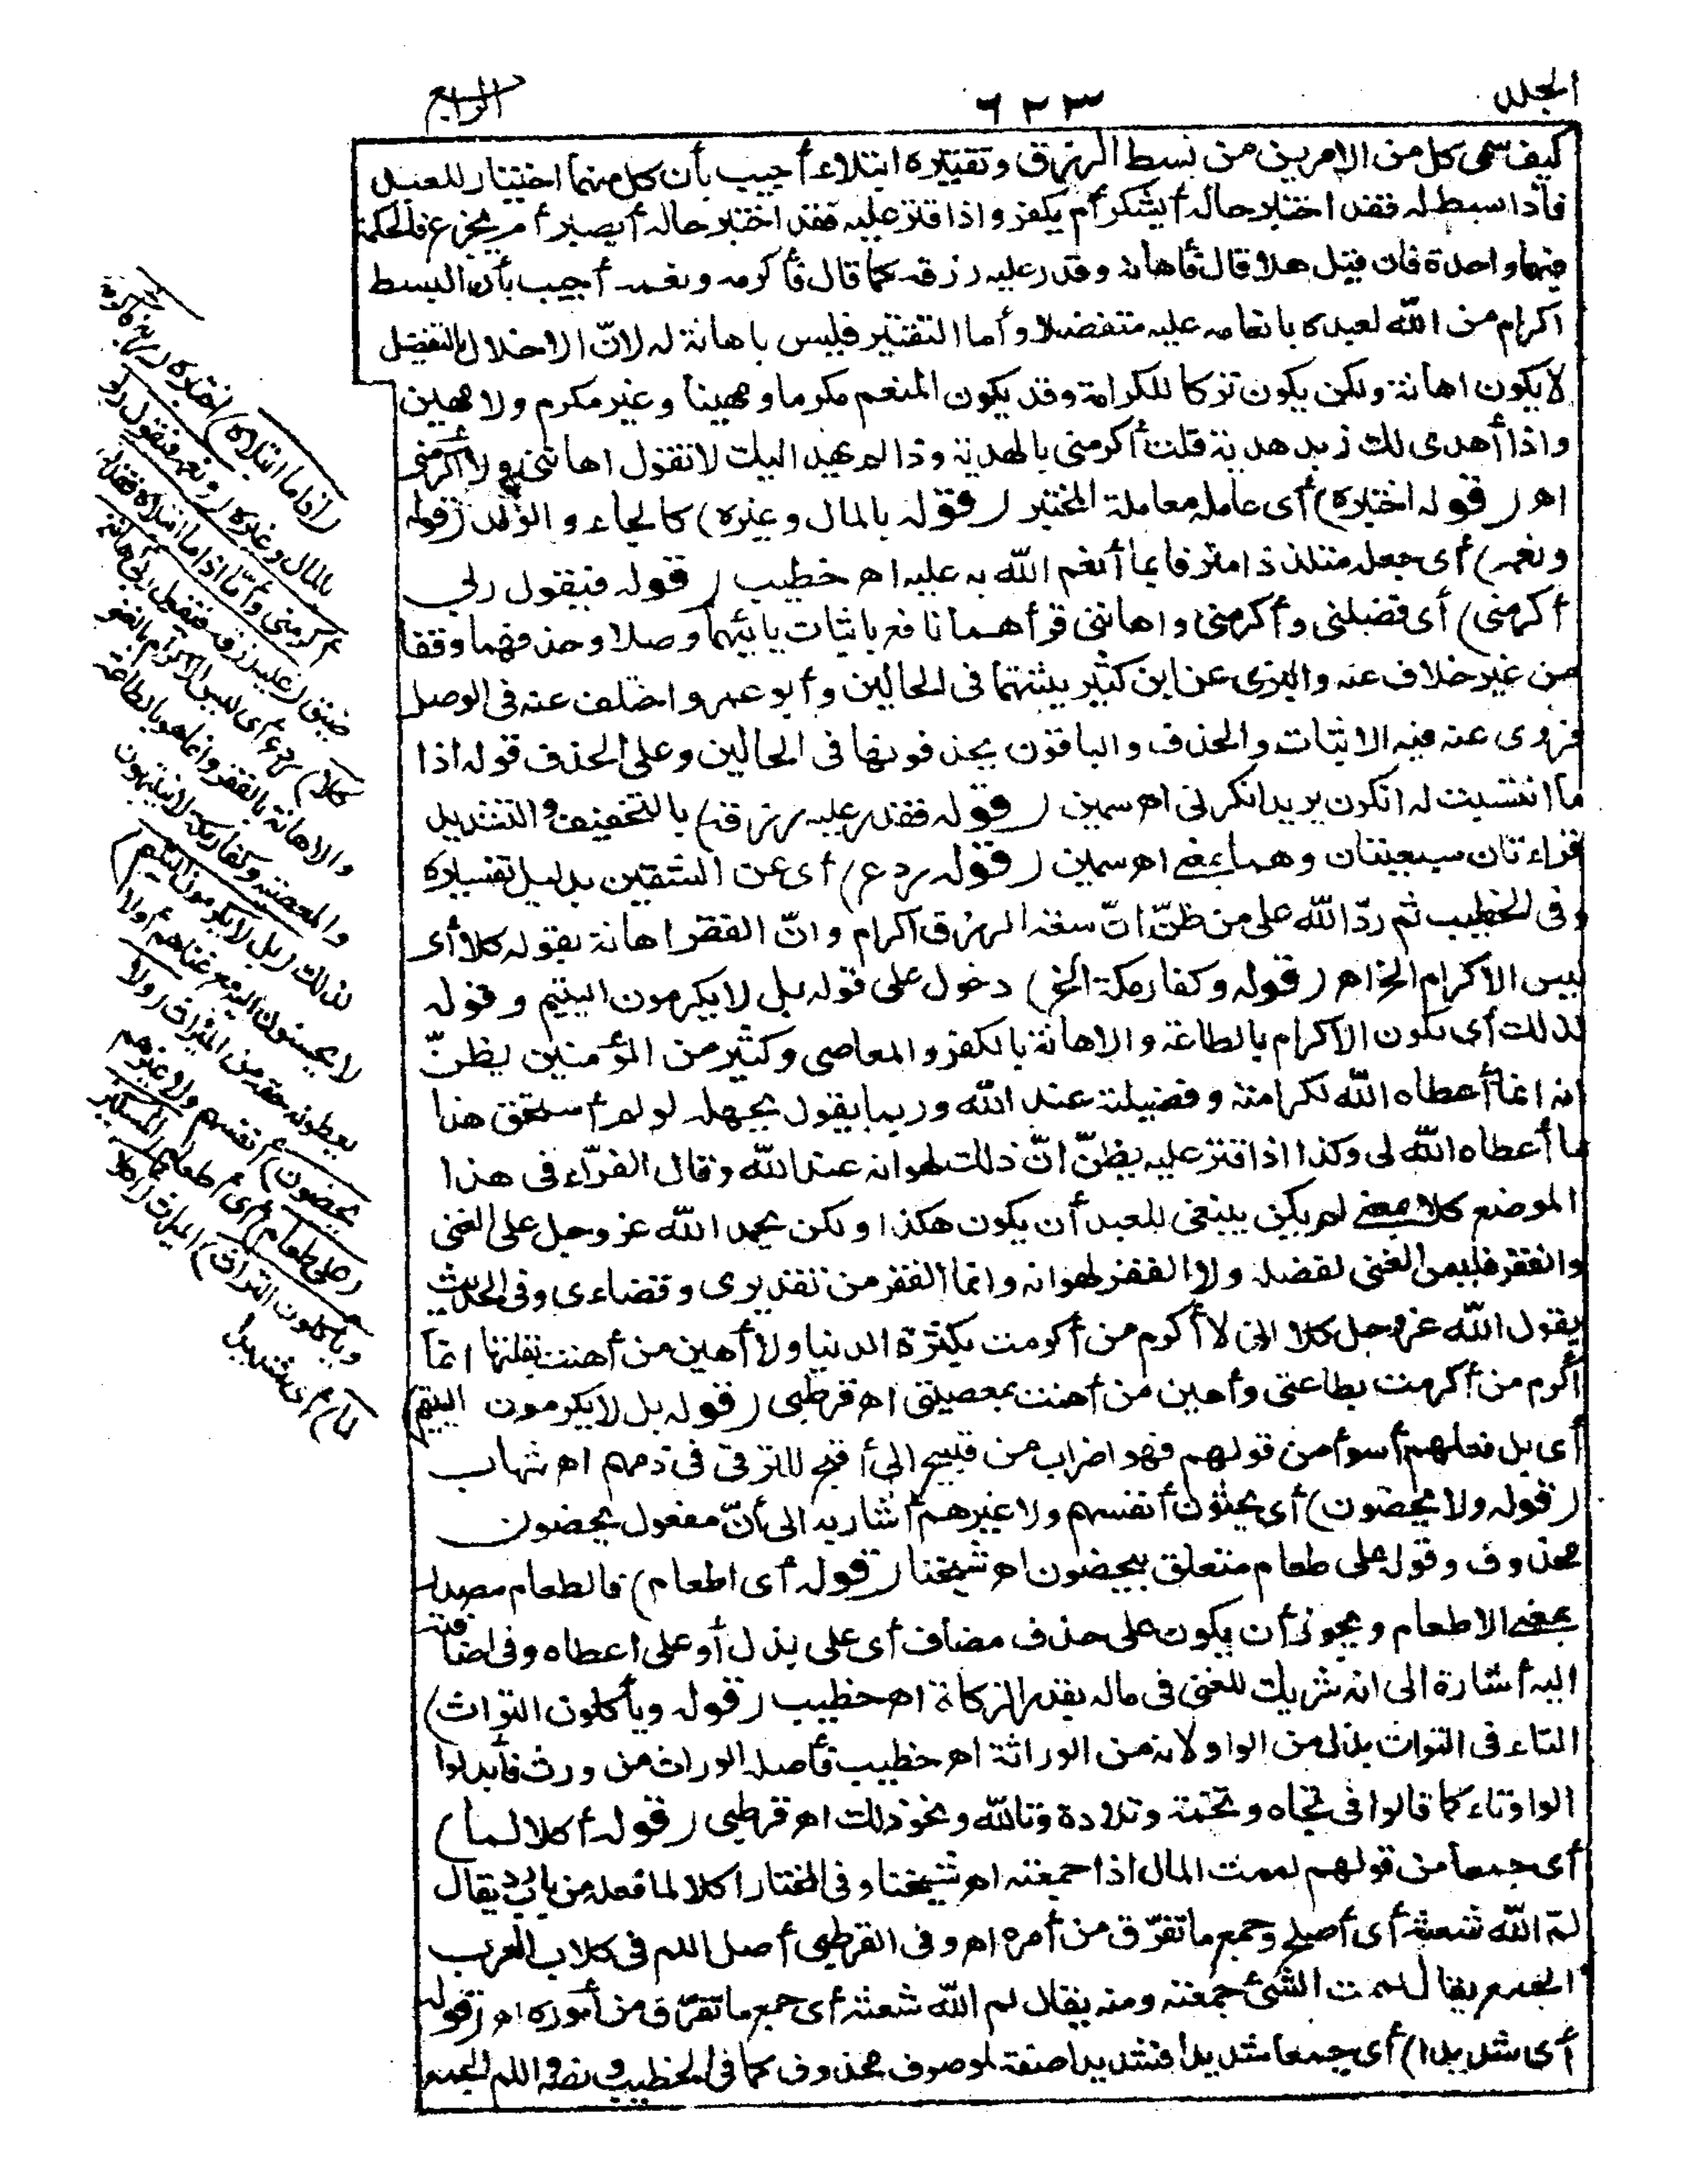 المجلد
٦٢٣
الرابع
كيف سمى كل من الامرين من بسط الرزق وتقتيره ابتلاء أجيب بأن كل منهما اختبار للعبد
فاذا بسط له فقد اختبر حاله أيشكر أم يكفر واذا قتر عليه فقد اختبر حاله أيصبر أم يجزع فالحكمة
فيهما واحدة فان قيل هلا قال فأهانه وقدر عليه رزقه كما قال فأكرمه ونعمه أجيب بأن البسط
اكرام من الله لعبده بانعامه عليه متفضلا وأما التقتير فليس باهانة له لانّ الاخلال بالتفضل
لا يكون اهانة ولكن يكون تركا للكرامة وقد يكون المنعم مكرما ومهينا وغير مكرم ولا مهين
واذا أهدى لك زيد هدية قلت أكرمنى بالهدية وذا لم يهد اليك لا تقول اهاننى ولا أكرمنى
اهـ (قوله اختبره) أى عامله معاملة المختبر (قوله بالمال وغيره) كالجاء والولد (قوله
ونعمه) أى جعله متلذذا مترفا بما أنعم الله به عليه اهـ خطيب (قوله فيقول ربى
أكرمنى) أى فضلنى وأكرمنى واهاننى قرأهما نافع باثبات يائيهما وصلا وحذفهما وقفا
من غير خلاف عنه والبزى عن ابن كثير يثبتهما فى الحالين وأبو عمرو اختلف عنه فى الوصل
فروى عنه فيه الاثبات والحذف والباقون يحذفونها فى الحالين وعلى الحذف قوله اذا
ما انتسبت له انكرن يريد انكرنى اهـ سمين (قوله فقدر عليه رزقه) بالتخفيف والتشديد
قراءتان سبعيتان وهما بمعنى اهـ سمين (قوله ردع) أى عن الشقين بدليل تفسيره
وفى الخطيب ثم ردّ الله على من ظنّ انّ سعة الرزق اكرام وانّ الفقر اهانة بقوله كلا أى
ليس الاكرام الخ اهـ (قوله وكفار مكة الخ) دخول على قوله بل لا يكرمون اليتيم وقوله
لذلك أى لكون الاكرام بالطاعة والاهانة بالكفر والمعاصى وكثير من المؤمنين يظنّ
انه انما أعطاه الله لكرامته وفضيلته عند الله وربما يقول بجهله لو لم أستحق هذا
ما أعطاه الله لى وكذا اذا قتر عليه يظنّ انّ ذلك لهوانه عند الله وقال الفرّاء فى هذا
الموضع كلا بمعنى لم يكن ينبغى للعبد أن يكون هكذا ولكن يحمد الله عز وجل على الغنى
والفقر فليس الغنى لفضله ولا الفقر لهوانه وانما الفقر من تقديرى وقضاءى وفى الحديث
يقول الله عز وجل كلا انى لا أكرم من أكرمت بكثرة الدنيا ولا أهين من أهنت بقلتها انما
أكرم من أكرمت بطاعتى وأهين من أهنت بمعصيتى اهـ قرطبى (قوله بل لا يكرمون اليتيم)
أى بل فعلهم أسوأ من قولهم فهو اضراب من قبيح الى أقبح للترقى فى ذمهم اهـ شهاب
(قوله ولا يحضون) أى يحثون أنفسهم ولا غيرهم أشار به الى أنّ مفعول يحضون
محذوف وقوله على طعام متعلق بيحضون اهـ شيخنا (قوله أى اطعام) فالطعام مصدر
بمعنى الاطعام ويجوز أن يكون على حذف مضاف أى على بذل أو على اعطاه وفى اضافته
اليه أشارة الى انه شريك للغنى فى ماله بقدر الزكاة اهـ خطيب (قوله ويأكلون التراث)
التاء فى التراث بدل من الواو لانه من الوراثة اهـ خطيب فأصله الوراث من ورث فأبدلوا
الواو تاء كما قالوا فى تجاه وتخمة وتلادة وتالله ونحو ذلك اهـ قرطبى (قوله أكلا لما)
أى جمعا من قولهم لممت المال اذا جمعته اهـ شيخنا وفى المختار اكلا لما فعله من باب ردّ يقال
لمّ الله شعثه أى أصلح وجمع ما تفرّق من أمره اهـ وفى القرطبى أصل اللم فى كلاب العرب
الجمع يقال لممت الشئ جمعته ومنه يقال لم الله شعثه أى جمع ما تفرّق من أموره اهـ (قوله
أى شديدا) أى جمعا شديدا فشديدا صفة لموصوف محذوف كما فى الخطيب ونصه اللم الجمع
(اذا ما ابتلاه) اختبره (ربه فأكرمه)
بالمال وغيره (ونعمه فيقول ربى
أكرمنى وأمّا اذا ما ابتلاه فقدر)
ضيق (عليه رزقه فيقول ربى اهاننى
كلا) ردع أى ليس الاكرام بالغنى
والاهانة بالفقر وانما هو بالطاعة
والمعصية وكفار مكة لا ينتبهون
لذلك (بل لا يكرمون اليتيم)
لا يحسنون اليه مع غناهم أو لا
يعطونه حقه من الميراث (ولا
يحضون) أنفسهم ولا غيرهم
(على طعام) أى اطعام (المسكين
ويأكلون التراث) الميراث (أكلا
لما) أى شديدا